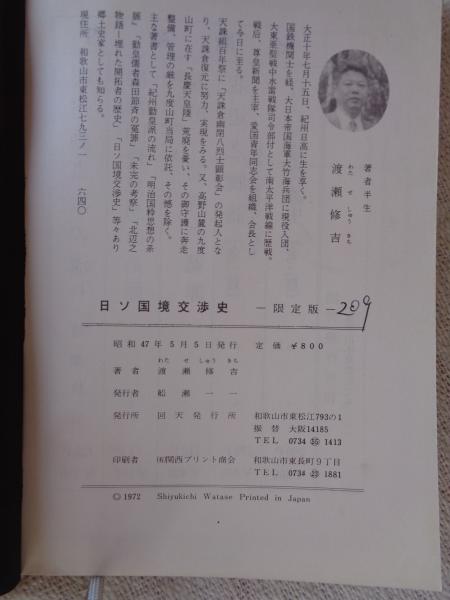 著者半生
わた せ しゅう きち
渡瀬修吉
大正十年七月十五日、紀州日高に生を享く。
国鉄機関士を経、大日本帝国海軍大竹海兵団に現役入団、
大東亜聖戦中水雷戦隊司令部付として南太平洋戦線に歴戦。
戦后、尊皇新聞を主宰、愛国青年同志会を組織、会長とし
て今日に至る。
天誅組百年祭に「天誅倉幽閉八烈士顕彰会」の発起人とな
り、天誅倉復元に努力、実現をみる。又、高野山麓の九度
山町に在す「長慶天皇陵」荒廃を憂い、その御守護に奔走
整備、管理の厳を九度山町当局に依託、その憾を除く。
主な著書として、「紀州勤皇派の流れ」「明治国粋思想の系
脈」「勤皇儒者森田節斉の冤罪」「未完の考察」「北辺之
物語―埋れた開拓者の歴史」「日ソ国境交渉史」等々あり
郷土史家としても知らる。
現住所 和歌山市東松江七九三ノ一 六四〇
日ソ国境交渉史 ―限定版― 209
昭和47年5月5日発行 定価 ¥800
わた せ しゅう きち
著者 渡瀬修吉
発行者 船瀬一一
発行所 回天発行所 和歌山市東松江793の1
振替 大阪14185
TEL 0734 55 1413
印刷者 (有)関西プリント商会 和歌山市東長町9丁目
TEL 0734 23 1881
© 1972 Shiyukichi Watase Printed in Japan